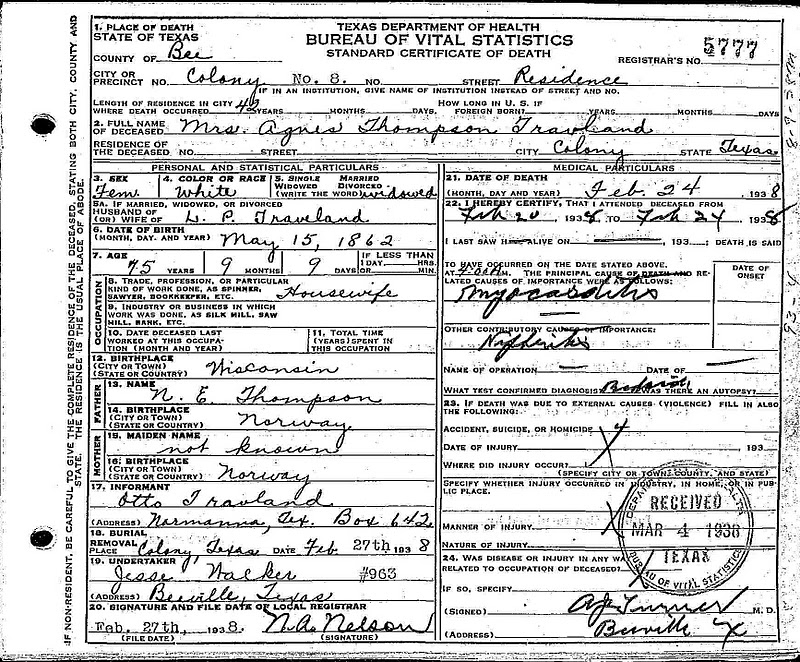 TEXAS DEPARTMENT OF HEALTH
BUREAU OF VITAL STATISTICS
STANDARD CERTIFICATE OF DEATH
1. PLACE OF DEATH
STATE OF TEXAS
COUNTY OF Bee
REGISTRAR'S NO. 5777
CITY OR PRECINCT NO. Colony No. 8. NO. STREET Residence
IF IN AN INSTITUTION, GIVE NAME OF INSTITUTION INSTEAD OF STREET AND NO.
LENGTH OF RESIDENCE IN CITY WHERE DEATH OCCURRED 42 YEARS MONTHS DAYS. HOW LONG IN U. S. IF FOREIGN BORN? YEARS MONTHS DAYS
2. FULL NAME OF DECEASED Mrs. Agnes Thompson Travland
RESIDENCE OF THE DECEASED NO. STREET CITY Colony STATE Texas
PERSONAL AND STATISTICAL PARTICULARS
3. SEX Fem. 4. COLOR OR RACE White 5. SINGLE MARRIED WIDOWED DIVORCED (WRITE THE WORD) widowed
5A. IF MARRIED, WIDOWED, OR DIVORCED
HUSBAND OF (OR) WIFE OF P. Traveland
6. DATE OF BIRTH
(MONTH, DAY, AND YEAR) May 15, 1862
7. AGE 75 YEARS 9 MONTHS 9 DAYS IF LESS THAN 1 DAY, HRS. OR MIN.
OCCUPATION
8. TRADE, PROFESSION, OR PARTICULAR KIND OF WORK DONE, AS SPINNER, SAWYER, BOOKKEEPER, ETC. Housewife
9. INDUSTRY OR BUSINESS IN WHICH WORK WAS DONE, AS SILK MILL, SAW MILL, BANK, ETC.
10. DATE DECEASED LAST WORKED AT THIS OCCUPATION (MONTH AND YEAR)
11. TOTAL TIME (YEARS) SPENT IN THIS OCCUPATION
12. BIRTHPLACE
(CITY OR TOWN)
(STATE OR COUNTRY) Wisconsin
FATHER
13. NAME N. E. Thompson
14. BIRTHPLACE
(CITY OR TOWN)
(STATE OR COUNTRY) Norway
MOTHER
15. MAIDEN NAME not known
16. BIRTHPLACE
(CITY OR TOWN)
(STATE OR COUNTRY) Norway
17. INFORMANT
Otto Travland
(ADDRESS) Normanna, Tex. Box 642
18. BURIAL REMOVAL
PLACE Colony, Texas DATE Feb. 27th 1938
19. UNDERTAKER
Jesse Walker #963
(ADDRESS) Beeville, Texas
20. SIGNATURE AND FILE DATE OF LOCAL REGISTRAR
Feb. 27th, 1938. N.A. Nelson
(FILE DATE) (SIGNATURE)
MEDICAL PARTICULARS
21. DATE OF DEATH
(MONTH, DAY AND YEAR) Feb 24 1938
22. I HEREBY CERTIFY, THAT I ATTENDED DECEASED FROM
Feb 20, 1938 TO Feb 24 1938
I LAST SAW H ALIVE ON 193 ; DEATH IS SAID
TO HAVE OCCURRED ON THE DATE STATED ABOVE.
AT M. THE PRINCIPAL CAUSE OF DEATH AND RELATED CAUSES OF IMPORTANCE WERE AS FOLLOWS:
DATE OF ONSET
Myocarditis
OTHER CONTRIBUTORY CAUSES OF IMPORTANCE:
NAME OF OPERATION DATE OF
WHAT TEST CONFIRMED DIAGNOSIS? WAS THERE AN AUTOPSY?
23. IF DEATH WAS DUE TO EXTERNAL CAUSES (VIOLENCE) FILL IN ALSO THE FOLLOWING:
ACCIDENT, SUICIDE, OR HOMICIDE
DATE OF INJURY 193
WHERE DID INJURY OCCUR?
(SPECIFY CITY OR TOWN: COUNTY, AND STATE)
SPECIFY WHETHER INJURY OCCURRED IN INDUSTRY, IN HOME, OR IN PUBLIC PLACE.
MANNER OF INJURY
NATURE OF INJURY
24. WAS DISEASE OR INJURY IN ANY WAY RELATED TO OCCUPATION OF DECEASED?
IF SO, SPECIFY
(SIGNED) Turner M. D.
(ADDRESS) Beeville
RECEIVED
MAR 4 1938
TEXAS
BUREAU OF VITAL STATISTICS
IF NON-RESIDENT, BE CAREFUL TO GIVE THE COMPLETE RESIDENCE OF THE DECEASED, STATING BOTH CITY, COUNTY AND STATE. THE RESIDENCE IS THE USUAL PLACE OF ABODE.